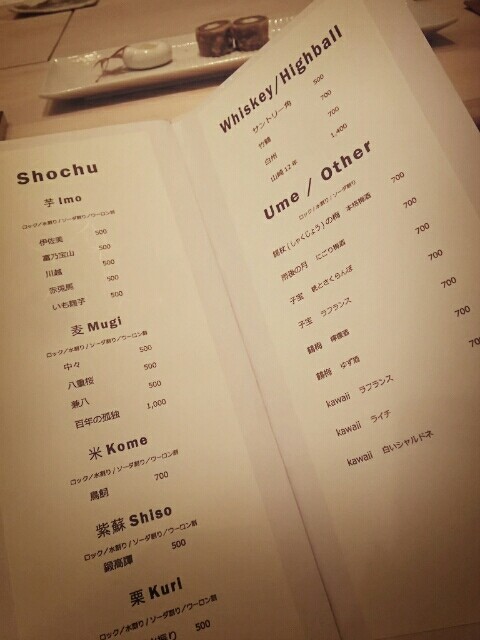 Shochu
芋 Imo
ロック/水割り/ソーダ割り/ウーロン割
伊佐美 500
富乃宝山 500
川越 500
赤兎馬 500
いも麹芋 500
麦 Mugi
ロック/水割り/ソーダ割り/ウーロン割
中々 500
八重桜 500
兼八 500
百年の孤独 1,000
米 Kome
ロック/水割り/ソーダ割り/ウーロン割
鳥飼 700
紫蘇 Shiso
ロック/水割り/ソーダ割り/ウーロン割
鍛高譚 500
栗 Kuri
ロック/水割り/ソーダ割り/ウーロン割
500
Whiskey/Highball
サントリー角 500
竹鶴 700
白州 700
山崎12年 1,400
Ume / Other
ロック/水割り/ソーダ割り
錫杖(しゃくじょう)の梅 本格梅酒 700
雨後の月 にごり梅酒 700
子宝 桃とさくらんぼ 700
子宝 ラフランス 700
鶴梅 檸檬酒 700
鶴梅 ゆず酒 700
kawaii ラフランス
kawaii ライチ
kawaii 白いシャルドネ